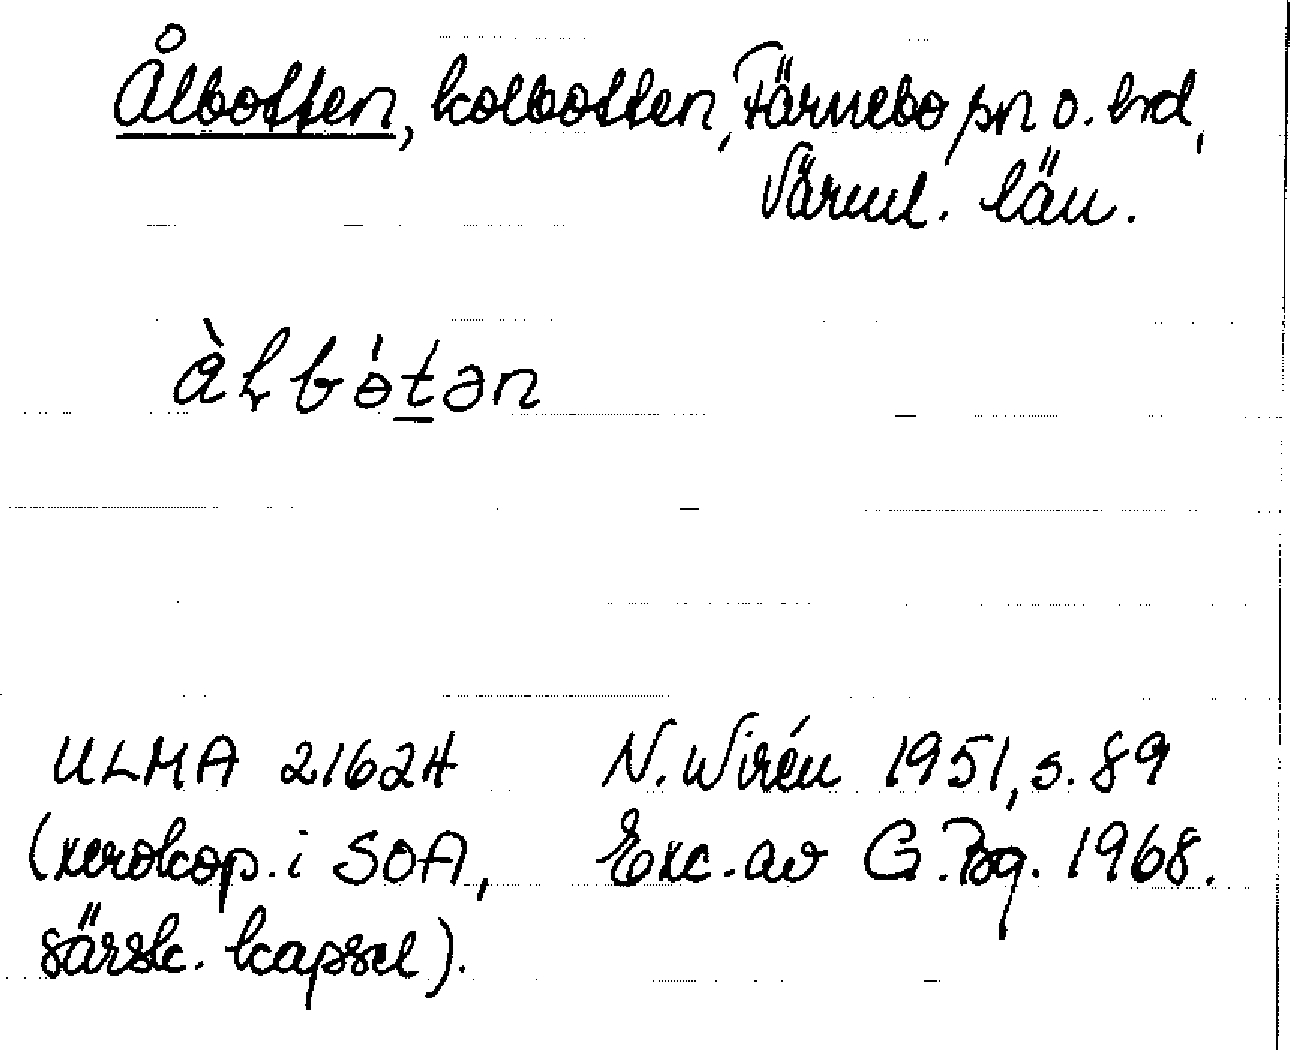 Ålbotten, kolbotten, Färnebo sn o. hd,
Värml. län.
ὰḷbɵ́t̲ən
ULMA 21624 N. Wirén 1951, s. 89
(xerokop. i SOA, Exc. av G. Bg. 1968.
särsk. kapsel).